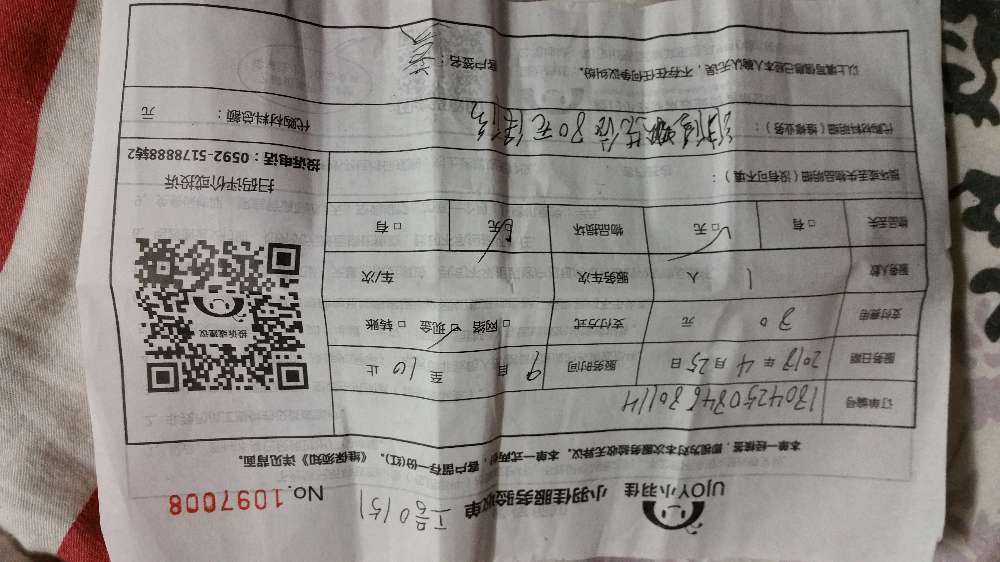 UJOY小羽佳 小羽佳服务验收单 工号0151 No. 1097008
本单一经核签，即视为对本次服务验收无异议。本单一式两份，客户留存一份(红)。《维保须知》详见背面。
订单编号
服务日期 2018年4月25日 服务时间 9 自 至 10 止
支付费用 30 元 支付方式 □网络 ☑现金 □转账
服务人数 1 人 服务车次 车/次
物品丢失 □有 ☑无 物品损坏 ☑无 □有
损坏或丢失物品明细（没有可不填）：
代购材料明细（维修业务）：
代购材料总额： 元
以上填写信息已经本人确认无误，不存在任何争议纠纷。
客户签名：
投诉或建议
扫码评价或投诉
投诉电话：0592-5178888转2